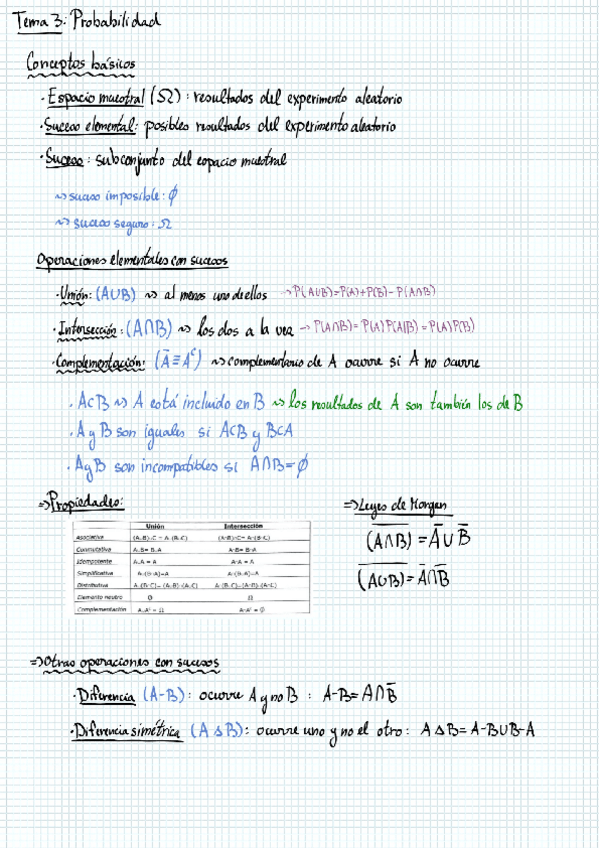 Tema 3: Probabilidad
Conceptos básicos
· Espacio muestral (Ω): resultados del experimento aleatorio
· Suceso elemental: posibles resultados del experimento aleatorio
· Suceso: subconjunto del espacio muestral
~> suceso imposible: ϕ
~> suceso seguro: Ω
Operaciones elementales con sucesos
· Unión: (A∪B) ~> al menos uno de ellos -> P(A∪B)=P(A)+P(B)-P(A∩B)
· Intersección: (A∩B) ~> los dos a la vez -> P(A∩B)= P(A)P(A|B)=P(A)P(B)
· Complementación: (Ā≡Aᶜ) ~> complementario de A ocurre si A no ocurre
· A⊂B ~> A está incluido en B ~> los resultados de A son también los de B
· A y B son iguales si A⊂B y B⊂A
· A y B son incompatibles si A∩B=ϕ
=> Propiedades:
Unión Intersección
Asociativa
Conmutativa
Idempotente
Simplificativa
Distributiva
Elemento neutro Ω
Complementación
=> Leyes de Morgan
(A∩B)̅ = A̅ ∪ B̅
(A∪B)̅ = A̅ ∩ B̅
=> Otras operaciones con sucesos
· Diferencia (A-B): ocurre A y no B : A-B= A∩B̅
· Diferencia simétrica (A Δ B): ocurre uno y no el otro: A Δ B= A-B∪B-A